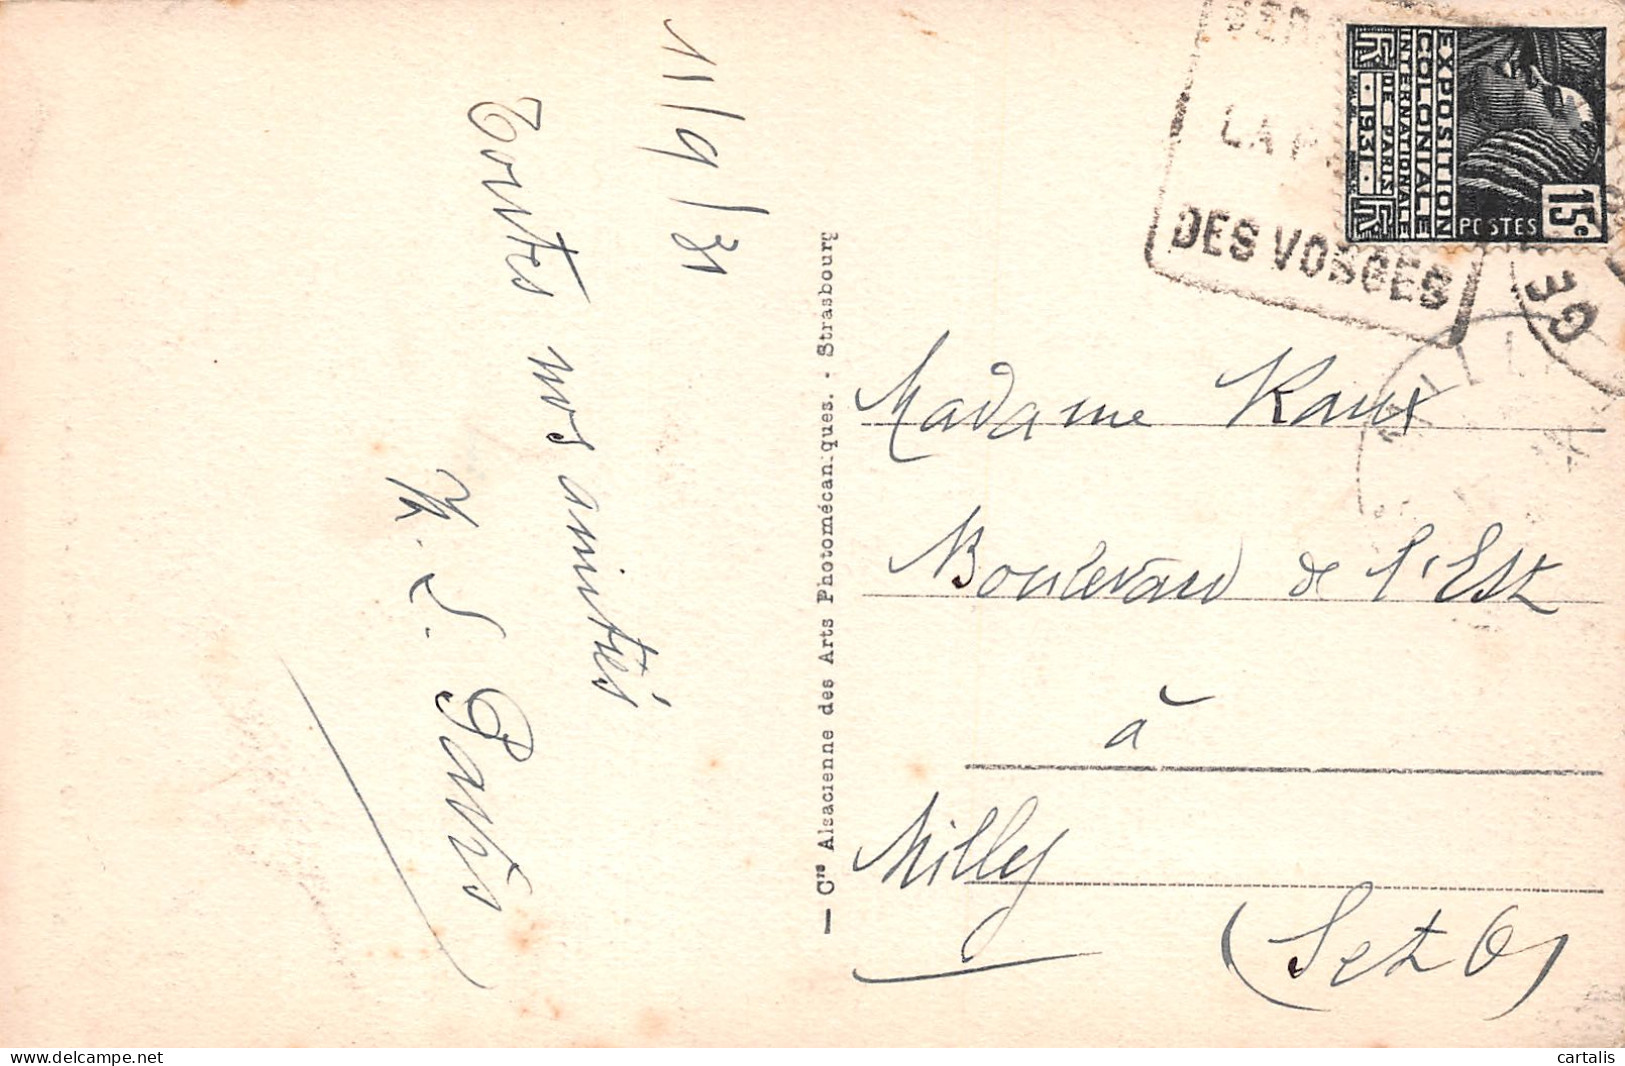 11/9/31
Toutes nos amitiés
— Cie Alsacienne des Arts Photomécaniques. - Strasbourg
LA
DES VOSGES
EXPOSITION
COLONIALE
INTERNATIONALE
DE PARIS
1931
POSTES
15c
Madame Raux
Boulevard de l'Est
à
Milly
(S et O)
cartalis